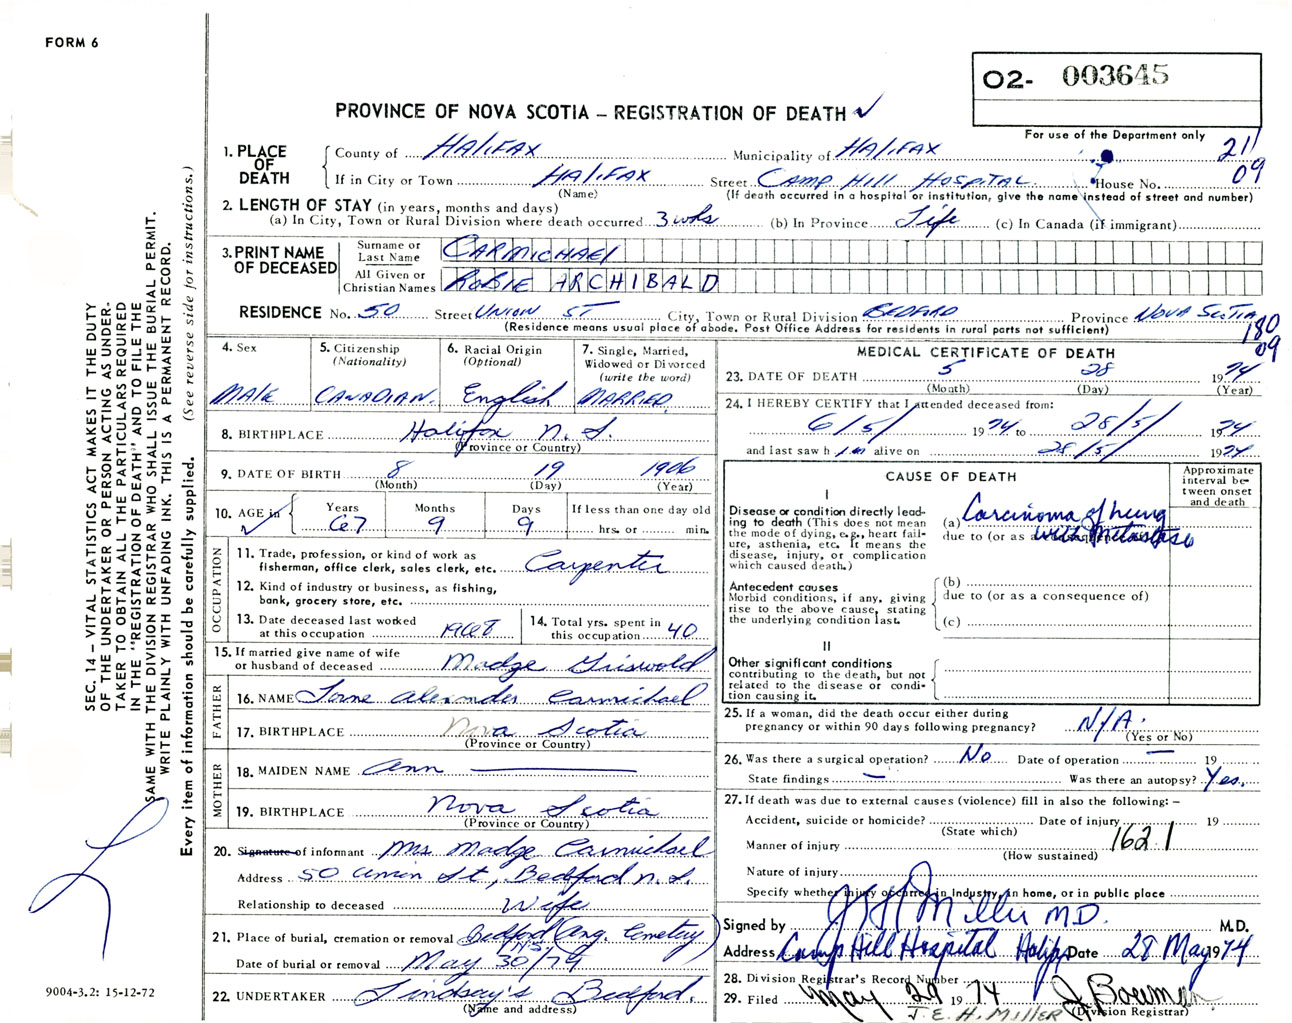 FORM 6
O2- 003645
PROVINCE OF NOVA SCOTIA – REGISTRATION OF DEATH ✓
For use of the Department only
211
09
1. PLACE OF DEATH
County of HALIFAX Municipality of HALIFAX
If in City or Town HALIFAX Street CAMP HILL HOSPITAL House No.
(Name) (If death occurred in a hospital or institution, give the name instead of street and number)
2. LENGTH OF STAY (in years, months and days)
(a) In City, Town or Rural Division where death occurred 3 wks (b) In Province Life (c) In Canada (if immigrant)
3. PRINT NAME OF DECEASED
Surname or Last Name CARMICHAEL
All Given or Christian Names ROBIE ARCHIBALD
RESIDENCE No. 50 Street UNION ST City, Town or Rural Division BEDFORD Province NOVA SCOTIA
(Residence means usual place of abode. Post Office Address for residents in rural parts not sufficient)
180
09
4. Sex MALE
5. Citizenship (Nationality) CANADIAN
6. Racial Origin (Optional) English
7. Single, Married, Widowed or Divorced (write the word) MARRIED
8. BIRTHPLACE Halifax N.S.
(Province or Country)
9. DATE OF BIRTH 8 19 1906
(Month) (Day) (Year)
10. AGE in ✓ Years 67 Months 9 Days 9 If less than one day old hrs. or min.
OCCUPATION
11. Trade, profession, or kind of work as fisherman, office clerk, sales clerk, etc. Carpenter
12. Kind of industry or business, as fishing, bank, grocery store, etc.
13. Date deceased last worked at this occupation 1968
14. Total yrs. spent in this occupation 40
15. If married give name of wife or husband of deceased Madge Griswold
FATHER
16. NAME Lorne Alexander Carmichael
17. BIRTHPLACE Nova Scotia
(Province or Country)
MOTHER
18. MAIDEN NAME Ann
19. BIRTHPLACE Nova Scotia
(Province or Country)
20. Signature of informant Mrs Madge Carmichael
Address 50 Union St, Bedford N.S.
Relationship to deceased Wife
21. Place of burial, cremation or removal Bedford (Ang. Cemetery)
NS
Date of burial or removal May 30/74
22. UNDERTAKER Lindsay's Bedford.
(Name and address)
MEDICAL CERTIFICATE OF DEATH
23. DATE OF DEATH 5 28 1974
(Month) (Day) (Year)
24. I HEREBY CERTIFY that I attended deceased from:
6/5/ 1974 to 28/5/ 1974
and last saw h im alive on 28/5/ 1974
CAUSE OF DEATH
Approximate interval between onset and death
I
Disease or condition directly leading to death (This does not mean the mode of dying, e.g., heart failure, asthenia, etc. It means the disease, injury, or complication which caused death.)
(a) Carcinoma of lung
with Metastases
due to (or as a consequence of)
Antecedent causes
Morbid conditions, if any, giving rise to the above cause, stating the underlying condition last.
(b)
due to (or as a consequence of)
(c)
II
Other significant conditions contributing to the death, but not related to the disease or condition causing it.
25. If a woman, did the death occur either during pregnancy or within 90 days following pregnancy? N/A.
(Yes or No)
26. Was there a surgical operation? No Date of operation — 19
State findings — Was there an autopsy? Yes.
27. If death was due to external causes (violence) fill in also the following: –
Accident, suicide or homicide? Date of injury 19
(State which)
Manner of injury 1621
(How sustained)
Nature of injury
Specify whether injury occurred in Industry, in home, or in public place
Signed by J H Miller M.D. M.D.
Address Camp Hill Hospital Halifax Date 28 May 1974
28. Division Registrar's Record Number
29. Filed May 29 1974 J Bowman
(Division Registrar)
J. E. H. MILLER
SEC. 14 – VITAL STATISTICS ACT MAKES IT THE DUTY
OF THE UNDERTAKER OR PERSON ACTING AS UNDER-
TAKER TO OBTAIN ALL THE PARTICULARS REQUIRED
IN THE "REGISTRATION OF DEATH" AND TO FILE THE
SAME WITH THE DIVISION REGISTRAR WHO SHALL ISSUE THE BURIAL PERMIT.
WRITE PLAINLY WITH UNFADING INK. THIS IS A PERMANENT RECORD.
Every item of information should be carefully supplied. (See reverse side for instructions.)
9004-3.2: 15-12-72